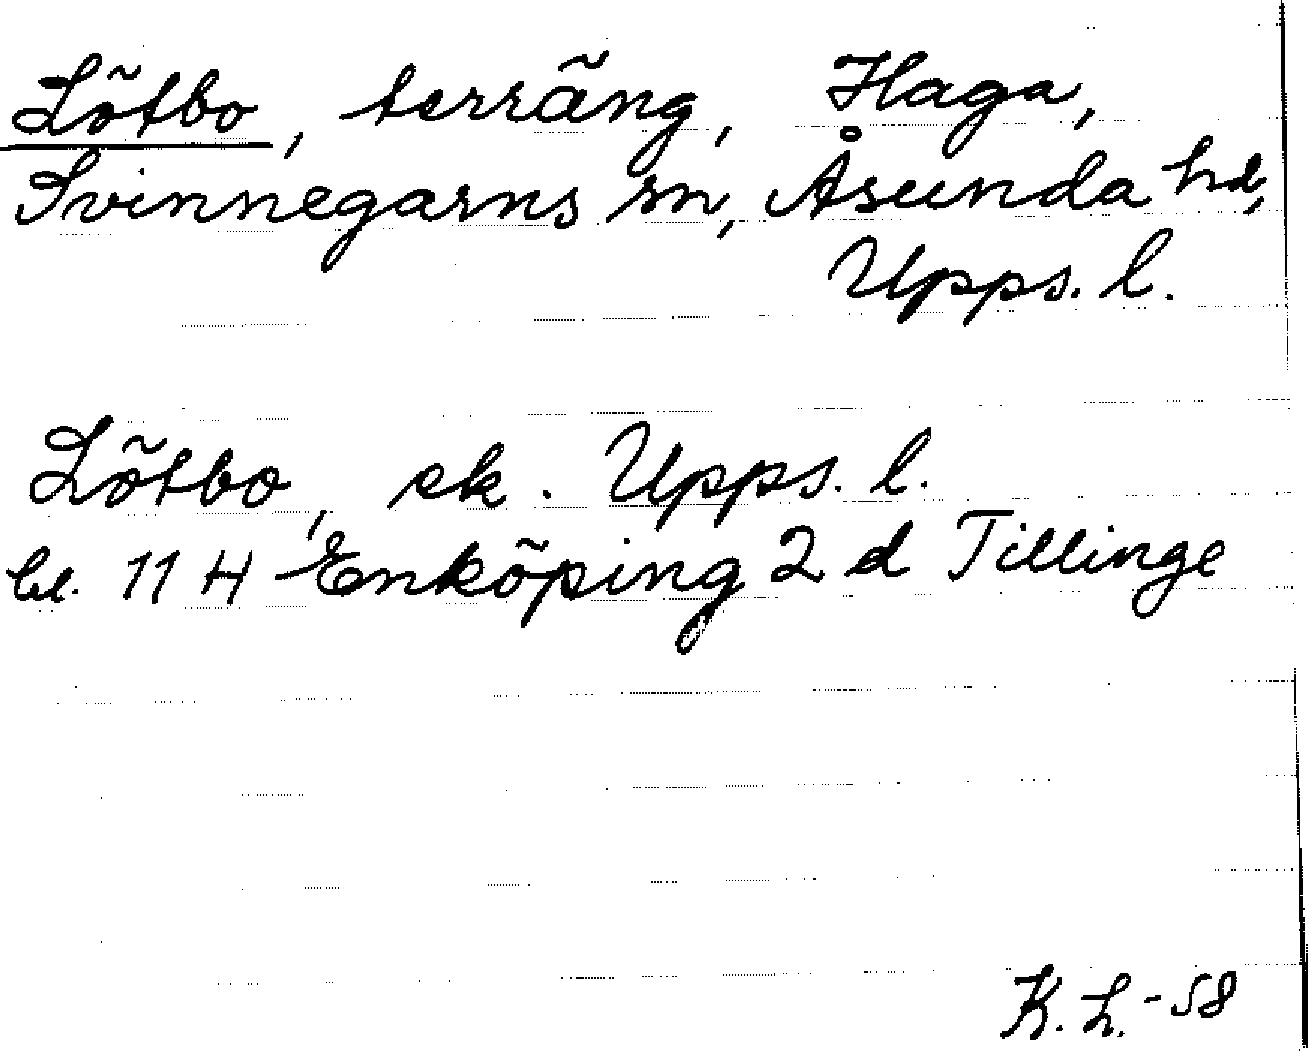 Lötbo, terräng, Haga,
Svinnegarns sn, Åsunda hd,
Upps. l.
Lötbo, ek. Upps. l.
bl. 11 H Enköping 2 d Tillinge
K. L. -58